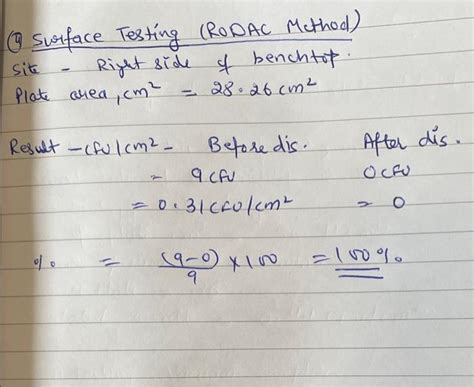 ④ Surface Testing (RODAC Method)
Site - Right side of benchtop.
Plate area, cm² = 28.26 cm²
Result - cfu/cm² - Before dis. After dis.
= 9 cfu 0 cfu
= 0.31 cfu/cm² = 0
% = (9-0)/9 × 100 = 100%